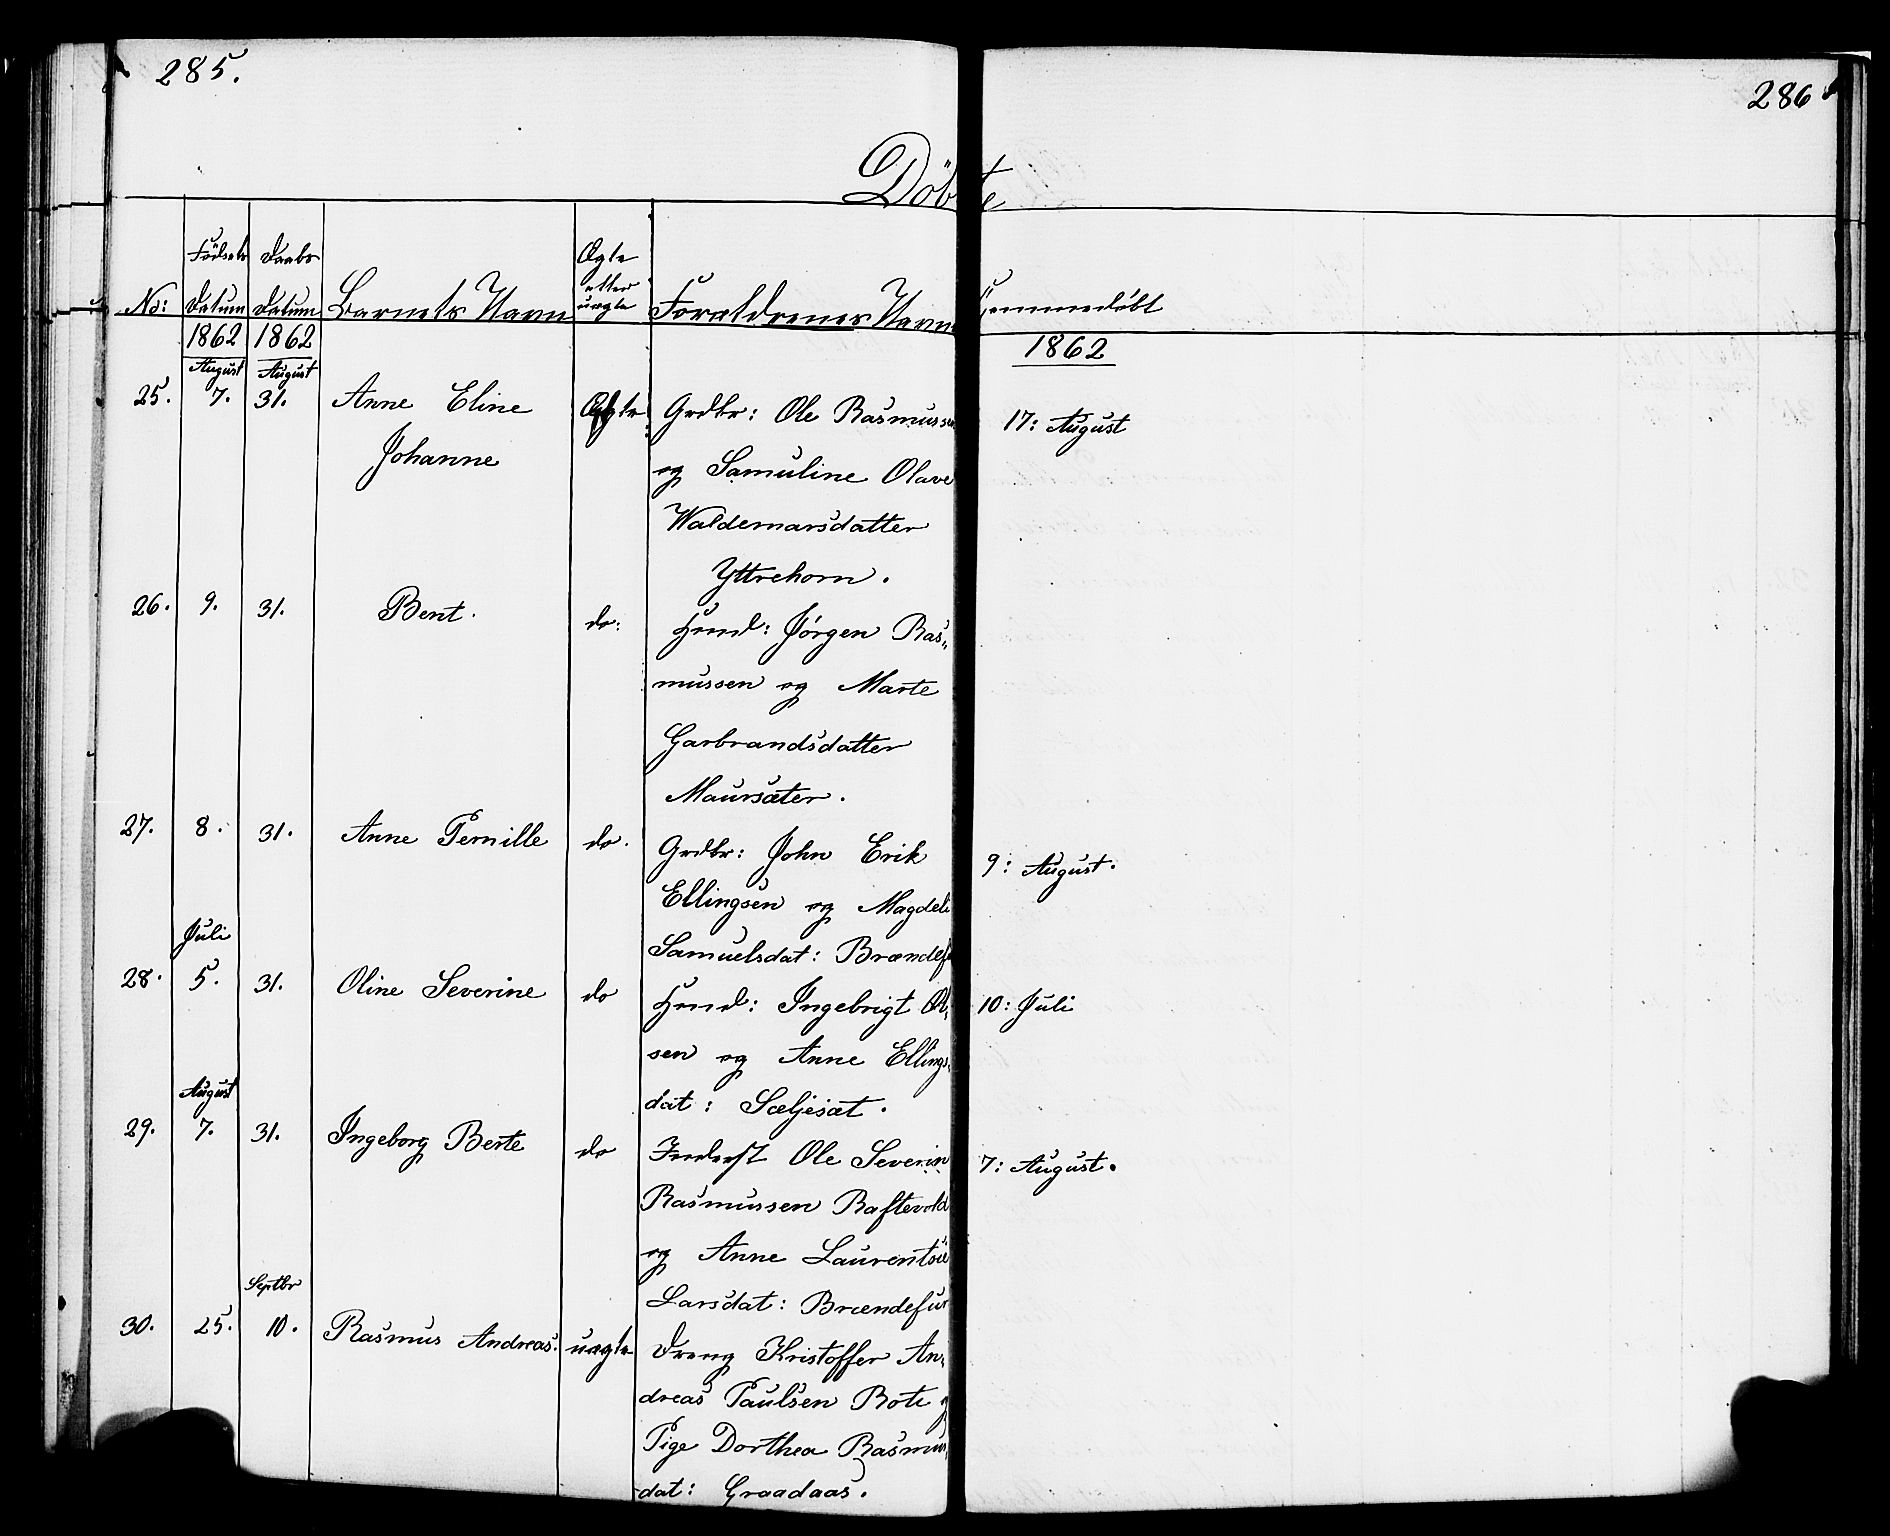 285.
286
Döbte
No: Födsels Datum Daabs Datum Barnets Navn Ægte eller uægte Forældrenes Navn Hjemmedöbt
1862 1862 1862
August August
25. 7. 31. Anne Eline Ægte Grdbr: Ole Rasmussen 17: August
Johanne og Samuline Olave
Waldemarsdatter
Yttrehorn.
26. 9. 31. Bent. do: Husmd: Jørgen Ras„
mussen og Marte
Garbrandsdatter
Maursæter.
27. 8. 31. Anne Pernille do. Grdbr: John Erik 9: August.
Ellingsen og Magdeli
Samuelsdat: Brændef
Juli
28. 5. 31. Oline Severine do Husmd: Ingebrigt Ol- 10: Juli
sen og Anne Ellings-
dat: Sæljesæt.
August
29. 7. 31. Ingeborg Berte do Inderst Ole Severin 7: August.
Rasmussen Raftevold
og Anne Laurentse
Larsdat: Brændefur
Septbr
30. 25. 10. Rasmus Andreas. uægte Dreng Kristoffer An-
dreas Paulsen Rote og
Pige Dorthea Rasmus
dat: Graadaas.